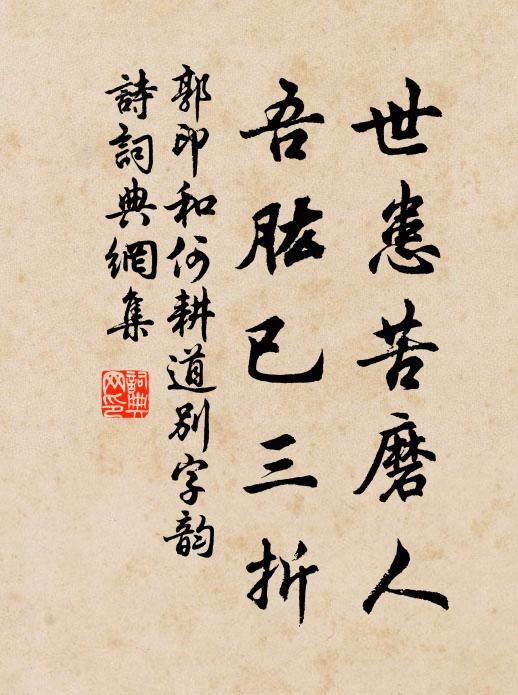 世患苦磨人
吾肱已三折
郭印和何耕道別字韵
詩詞典網集
詞典網印